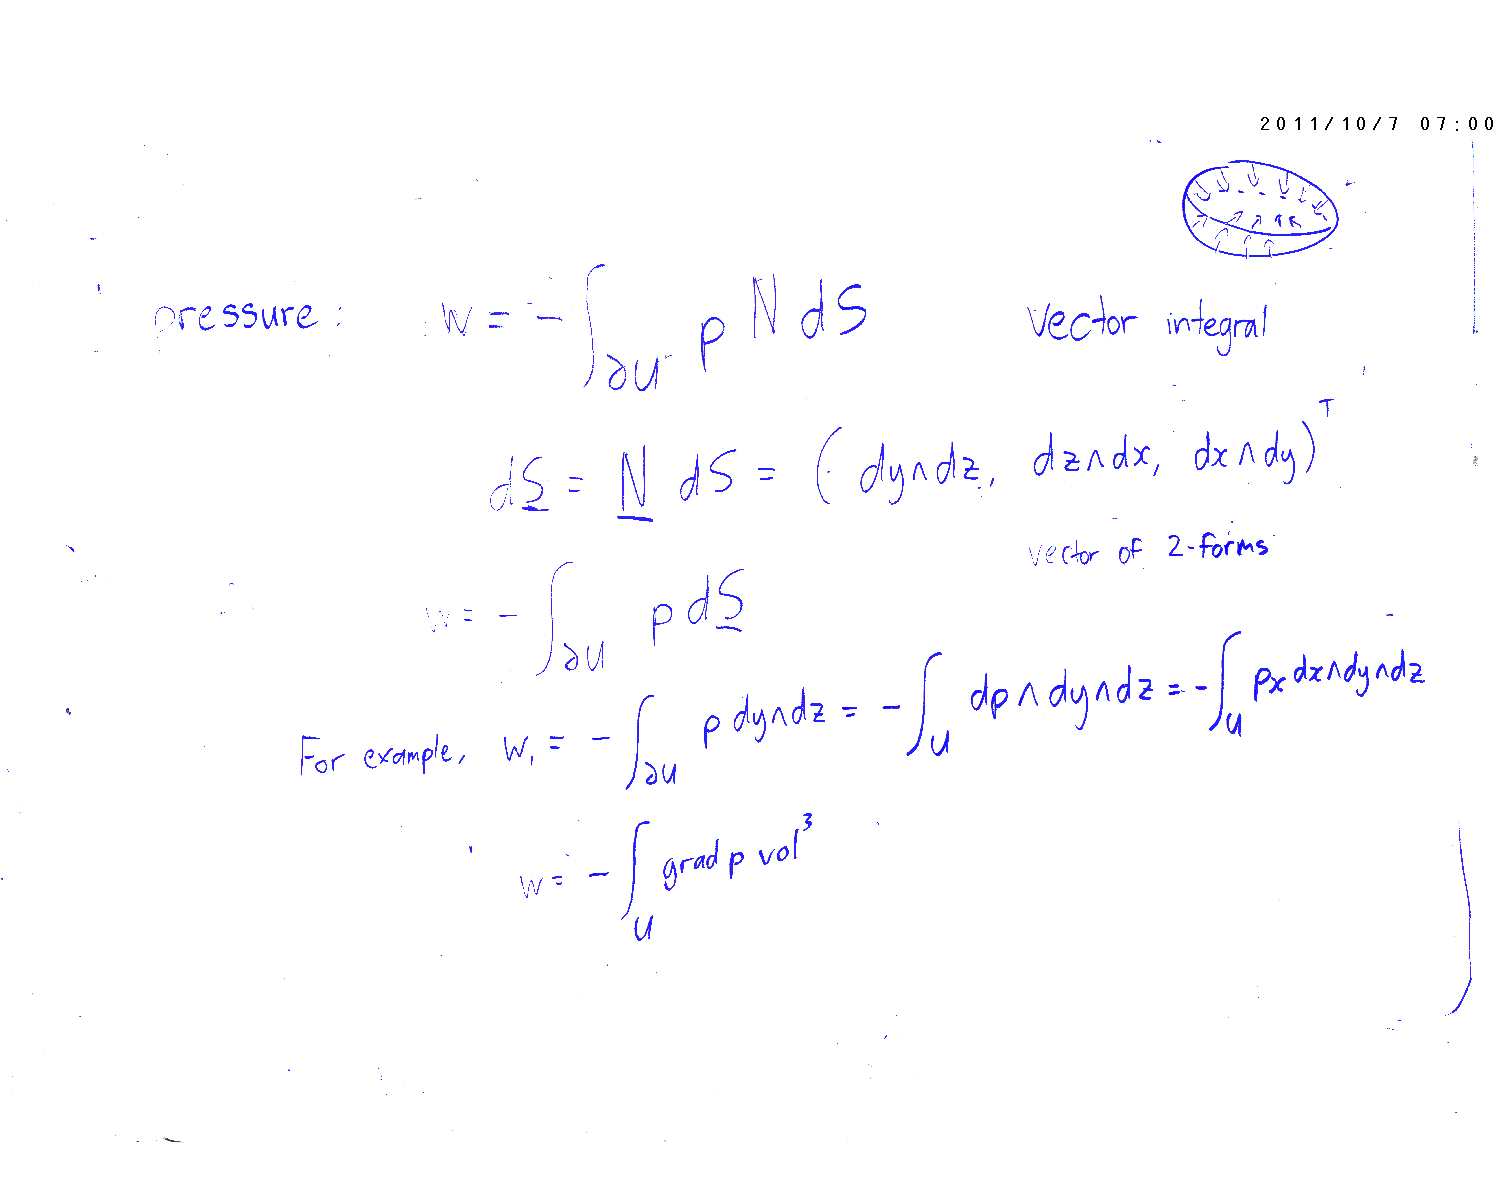 2011/10/7 07:00
pressure: w = - ∫_∂U p N dS vector integral
dS = N dS = ( dy∧dz, dz∧dx, dx∧dy)^T
vector of 2-forms
w = - ∫_∂U p dS
For example, w₁ = - ∫_∂U p dy∧dz = - ∫_U dp ∧ dy∧dz = - ∫_U px dx∧dy∧dz
w = - ∫_U grad p vol³